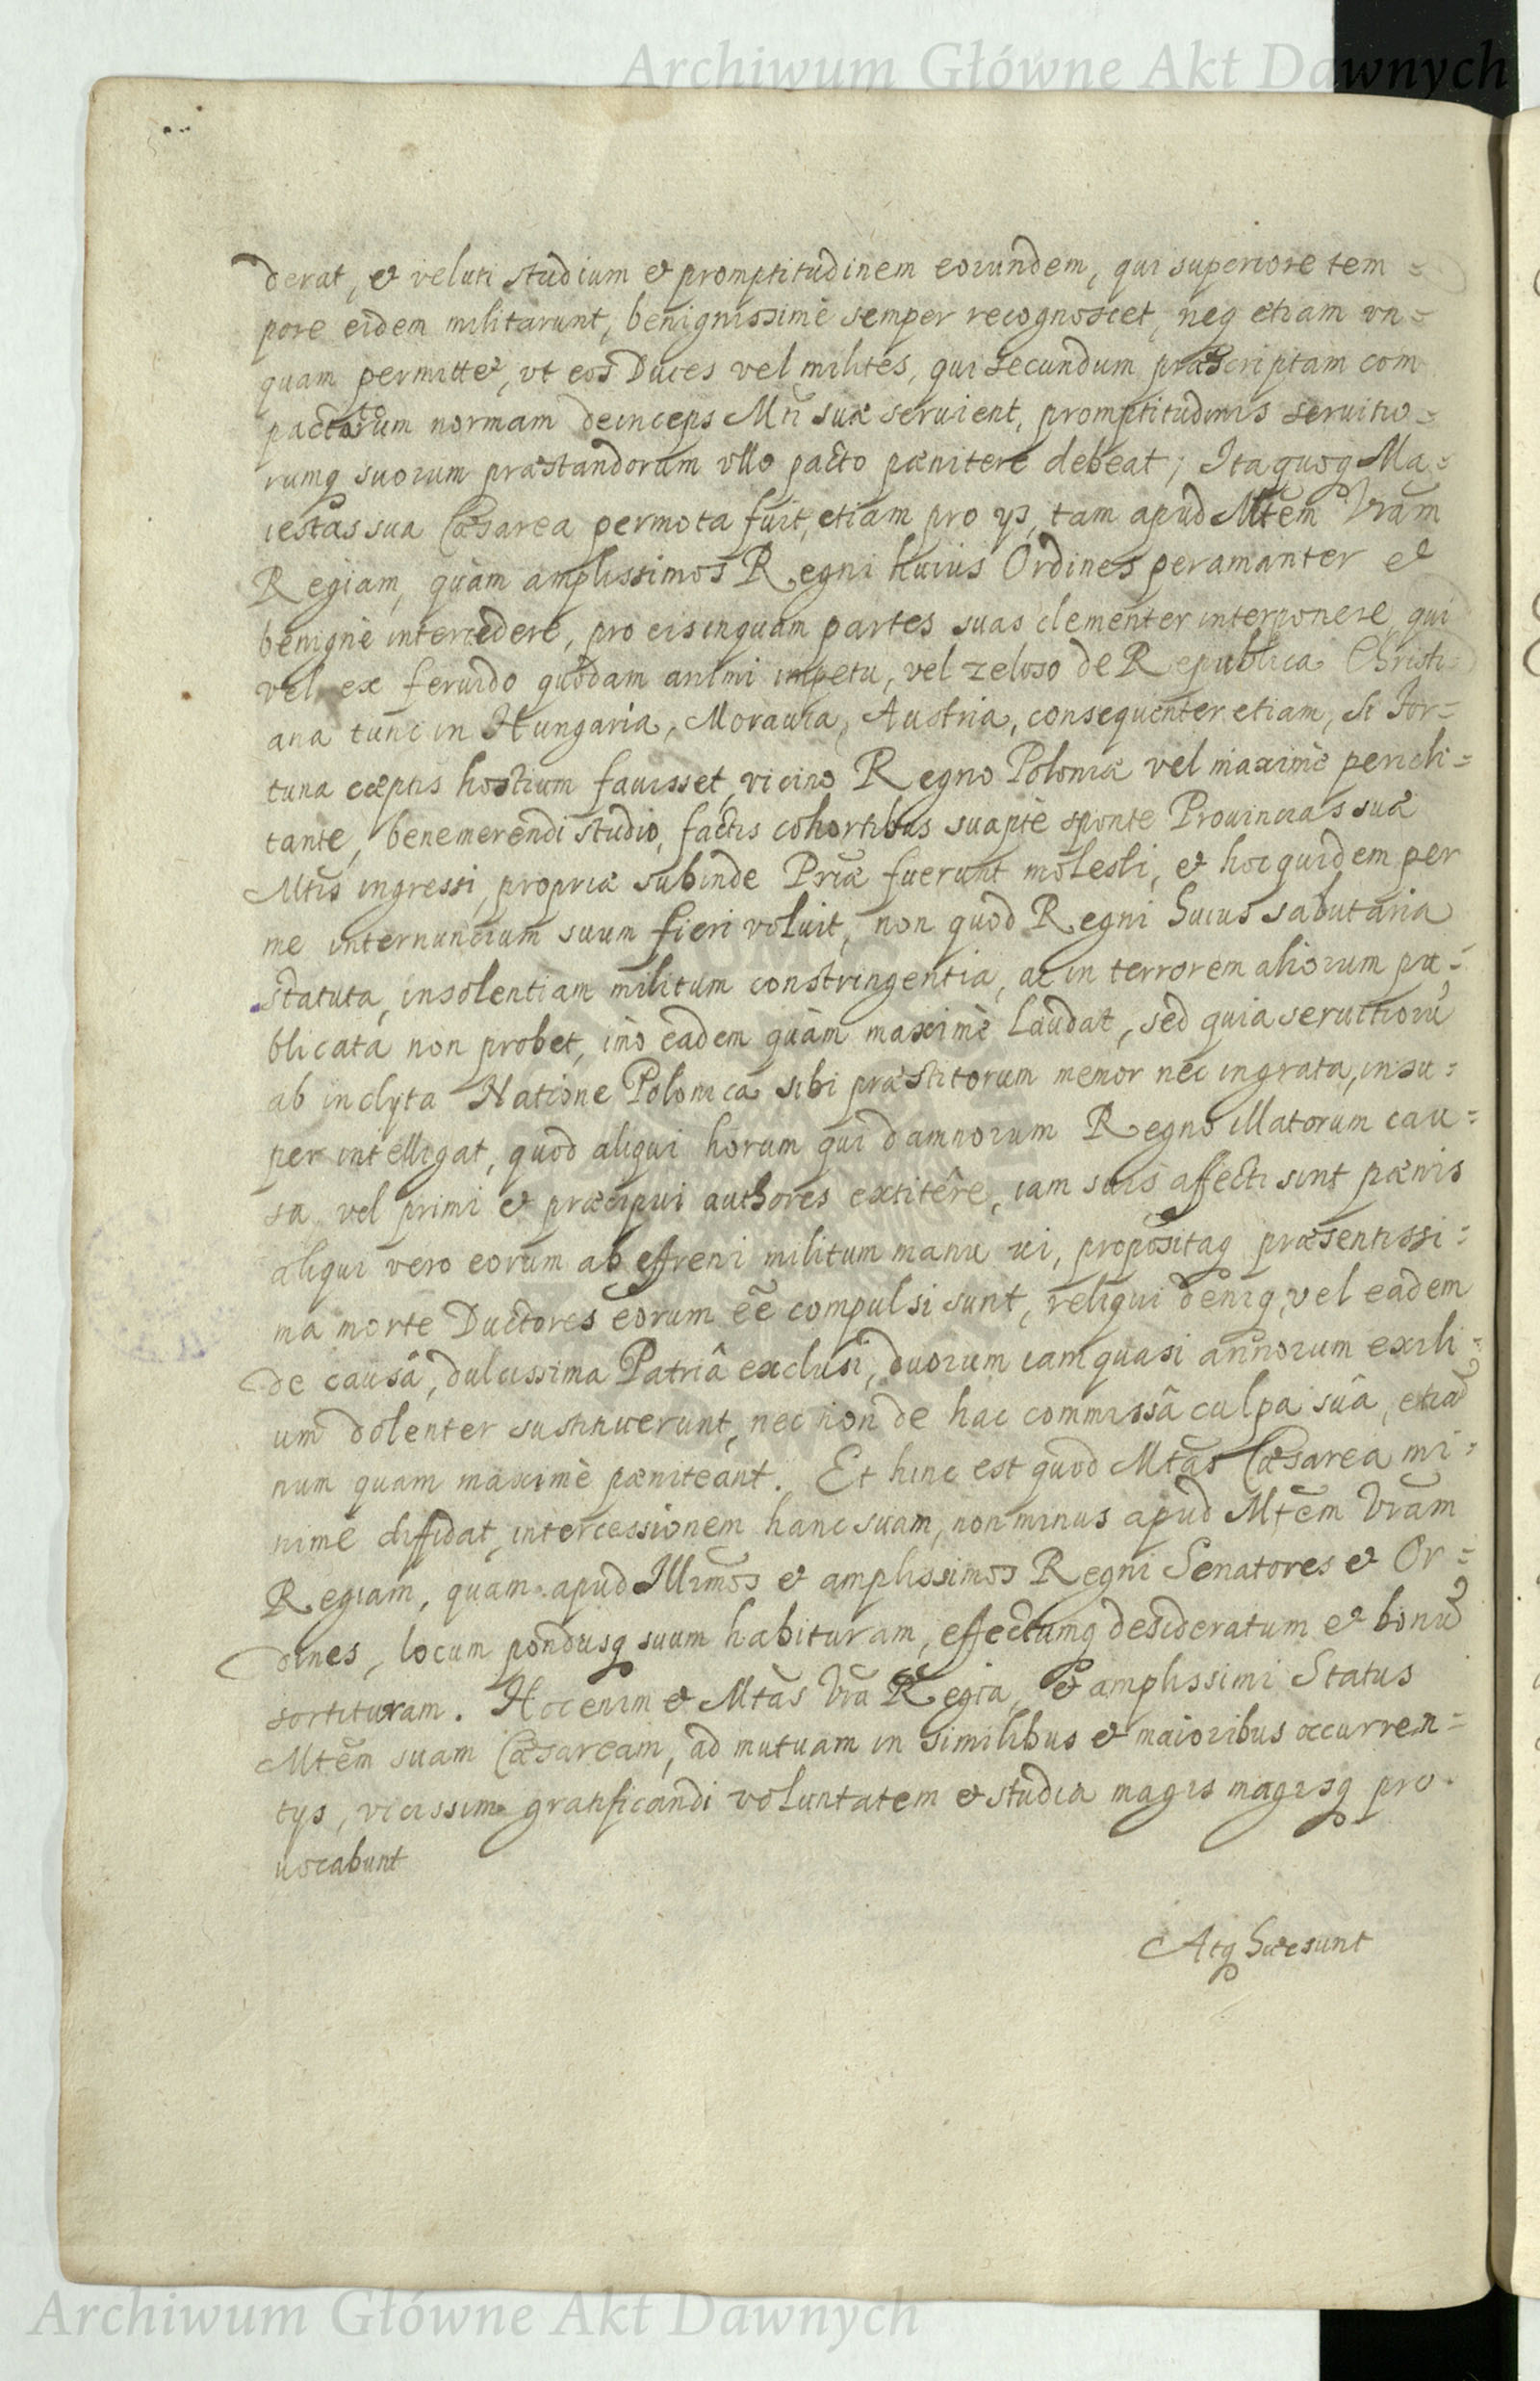 Archiwum Główne Akt Dawnych
derat, et veluti studium et promptitudinem eorundem, qui superiore tem=
pore eidem militarunt, benignissimè semper recognoscet, neq etiam vn=
quam permittet, vt eos Duces vel milites, qui secundum præscriptam com
pactorum normam deinceps Mti suæ seruient, promptitudinis seruitio=
rumq suorum præstandorum vllo pacto pænitere debeat; Ita quoq Ma=
iestas sua Cæsarea permota fuit, etiam pro ijs, tam apud Mtem Vram
Regiam, quàm amplissimos Regni huius Ordines peramanter et
benignè intercedere, pro eis inquam partes suas clementer interponere, qui
vel ex feruido quodam animi impetu, vel zeloso de Republica Christi=
ana tunc in Hungaria, Morauia, Austria, consequenter etiam, si For=
tuna cæptis hostium fauisset, vicino Regno Poloniæ vel maximè pericli=
tante, benemerendi studio, factis cohortibus suapte sponte Prouincias suæ
Mtis ingressi, propriæ subinde Priæ fuerunt molesti, et hoc quidem per
me internuncium suum fieri voluit, non quod Regni huius salutaria
statuta, insolentiam militum constringentia, ac in terrorem aliorum pu=
blicata non probet, imò eadem quàm maximè laudat, sed quia seruitiorū
ab inclyta Natione Polonica sibi præstitorum memor nec ingrata, insu=
per intelligat, quod aliqui horum qui damnorum Regno illatorum cau=
sa, vel primi et præcipui authores extitêre, iam suis affecti sint pænis
aliqui vero eorum ab effreni militum manu ui, propositaq præsentissi=
ma morte Ductores eorum eē compulsi sunt, reliqui deniq, vel eadem
de causâ, dulcissima Patriâ exclusi, duorum iam quasi annorum exili=
um dolenter sustinuerunt, nec non de hac commissâ culpa suâ, etiād
num quam maximè pæniteant. Et hinc est quod Mtas Cæsarea mi=
nime diffidat, intercessionem hanc suam, non minus apud Mtem Vram
Regiam, quam apud Illmos et amplissimos Regni Senatores et Or=
dines, locum pondusq suum habituram, effectumq desideratum et bonū
sortituram. Hoc enim et Mtas Vra Regia, et amplissimi Status
Mtem suam Cæsaream, ad mutuam in similibus et maioribus occurren=
tijs, vicissim gratificandi voluntatem et studia magis magisq pro
uocabunt
Atq hæc sunt
Archiwum Główne Akt Dawnych